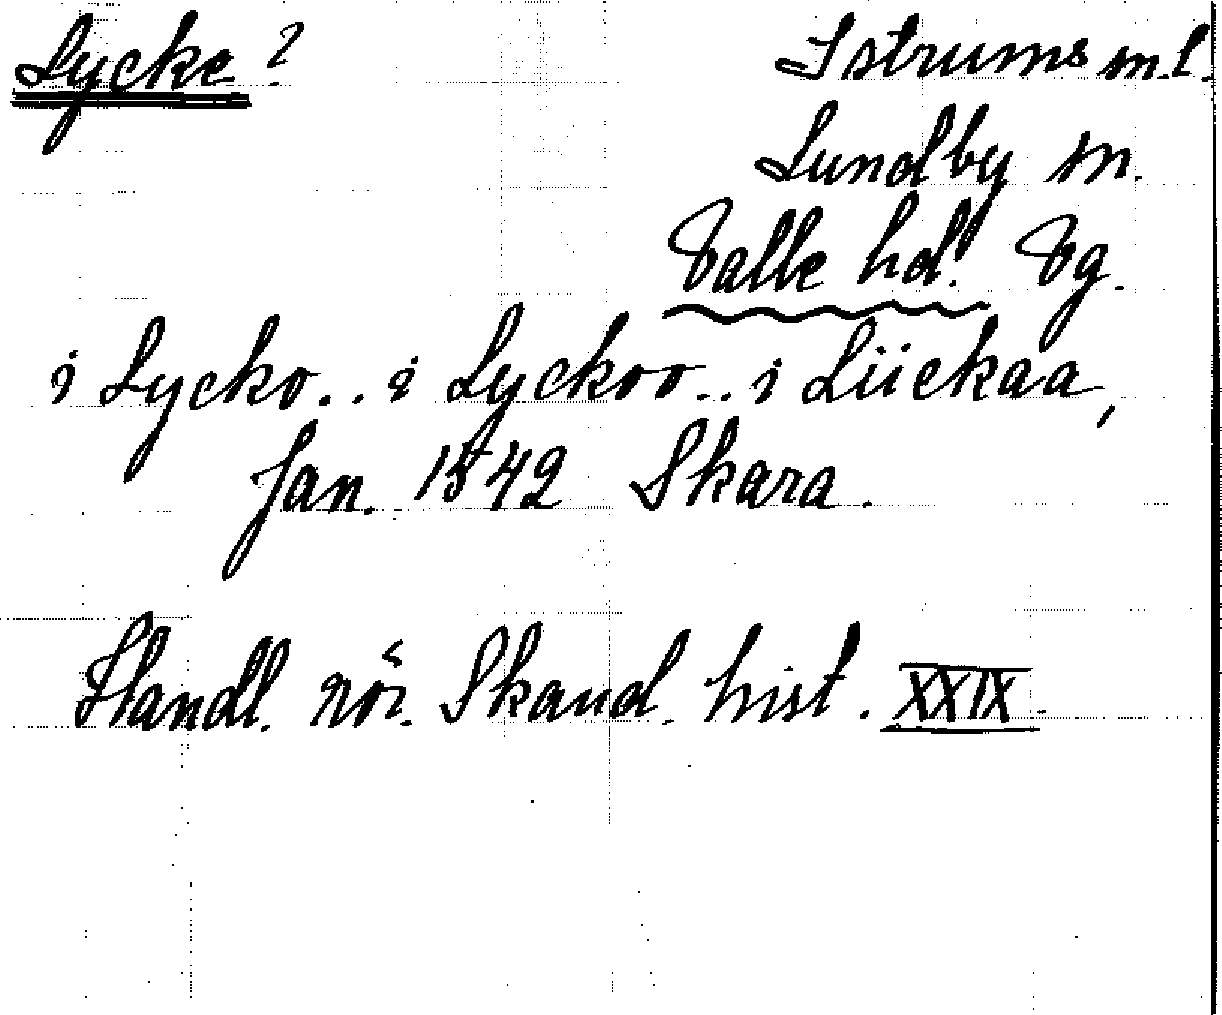 Lycke ?
Istrums m.l.
Lundby sn.
Valle hd. Vg.
i Lycko.. i Lyckoo.. i Lüekaa,
Jan. 1542 Skara.
Handl. rör. Skand. hist. XXIX.